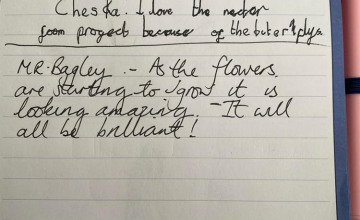 Cheska. I love the necter
from project because of the buterflys
MR. Bagley .- As the flowers
are starting to grow it is
looking amazing. - It will
all be brilliant!